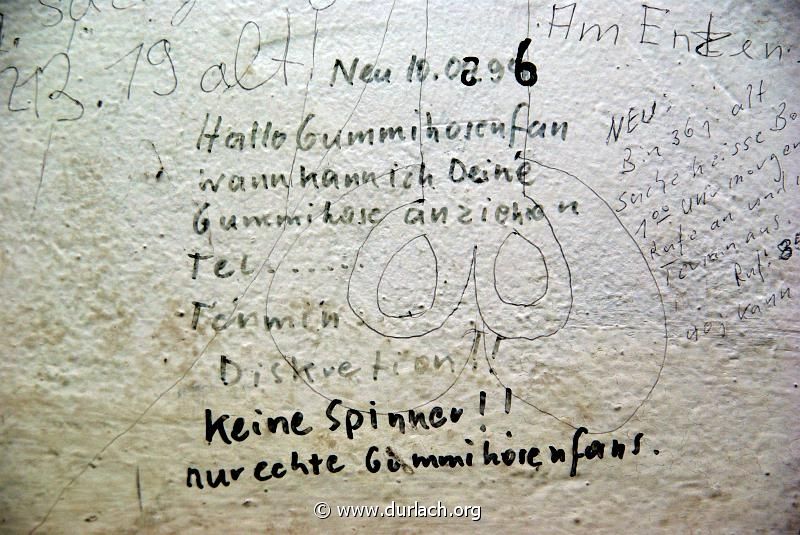 19 alt!
Am Enzen
Neu 10.
Hallo Gummihosenfan
wann kann ich Deine
Gummihose anziehen
Tel.......
Termin.
Diskretion!!
Keine Spinner!!
nur echte Gummihosenfans.
NEU:
Bin 36 j. alt
Suche heisse
1⁰⁰ Uhr morgen
Rufe an und
Termin aus.
Ruf:
kann
© www.durlach.org